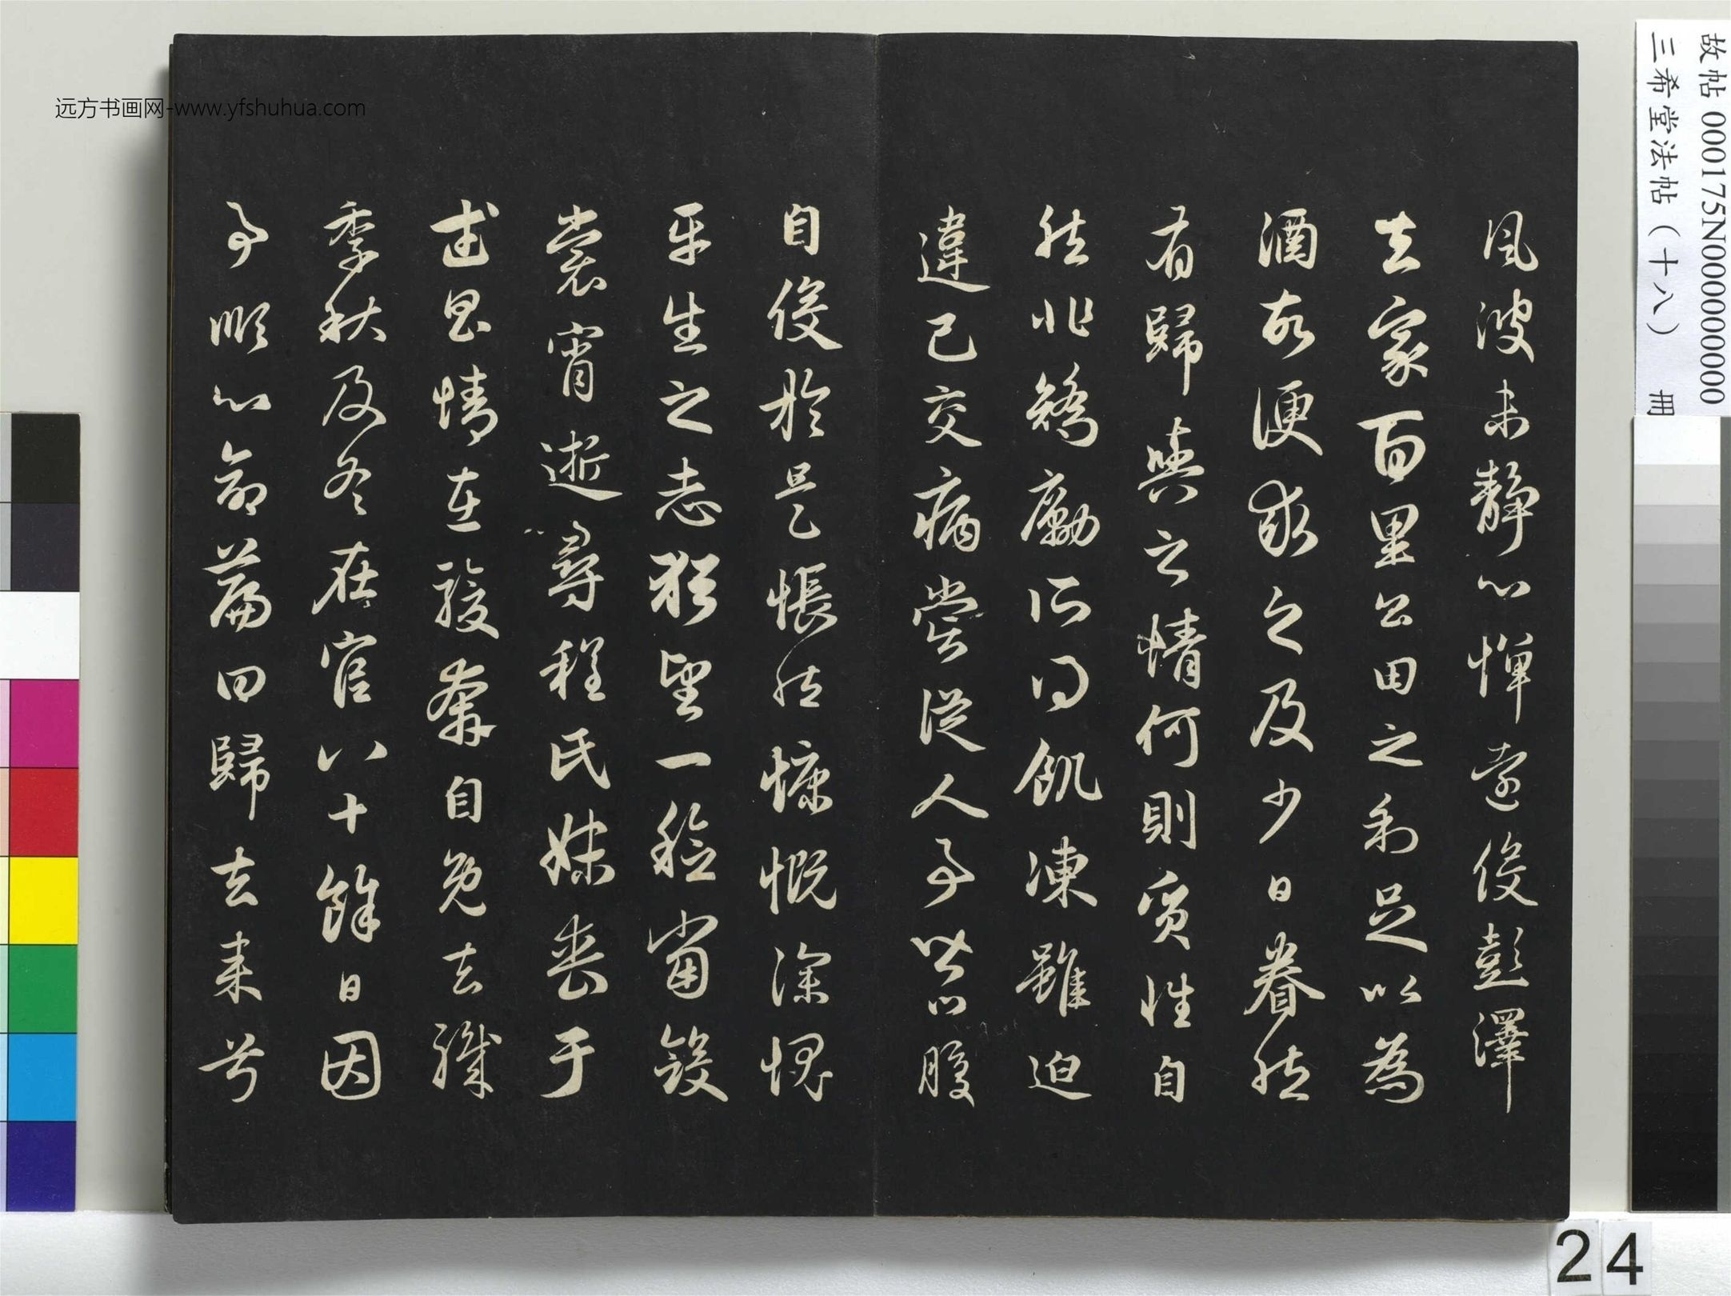 風波未靜心憚遠役彭澤
去家百里公田之利足以為
酒故便求之及少日眷然
有歸與之情何則質性自
然非矯勵所得飢凍雖迫
違己交病嘗從人事皆口腹
自役於是悵然慷慨深愧
平生之志猶望一稔當斂
裳宵逝尋程氏妹喪于
武昌情在駿奔自免去職
季秋及冬在官八十餘日因
事順心命篇曰歸去來兮
远方书画网-www.yfshuhua.com
故帖 000175N000000000
三希堂法帖（十八） 冊
24